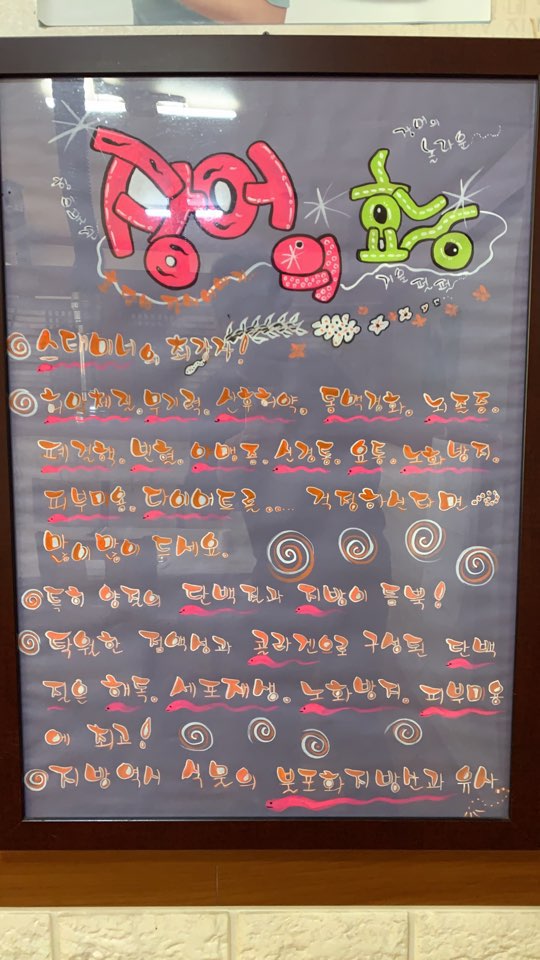 장어의 효능
스태미너의 최강자!
허약체질. 무기력. 신후허약. 동맥경화. 뇌졸중.
폐결핵. 빈혈. 야맹증. 신경통. 요통. 노화방지.
피부미용. 다이어트로.... 걱정하신다면...
많이많이 드세요.
특히 양질의 단백질과 지방이 듬뿍!
탁월한 점액성과 콜라겐으로 구성된 단백
질은 해독. 세포재생. 노화방지. 피부미용
에 최고!
지방 역시 식물의 불포화지방산과 유사